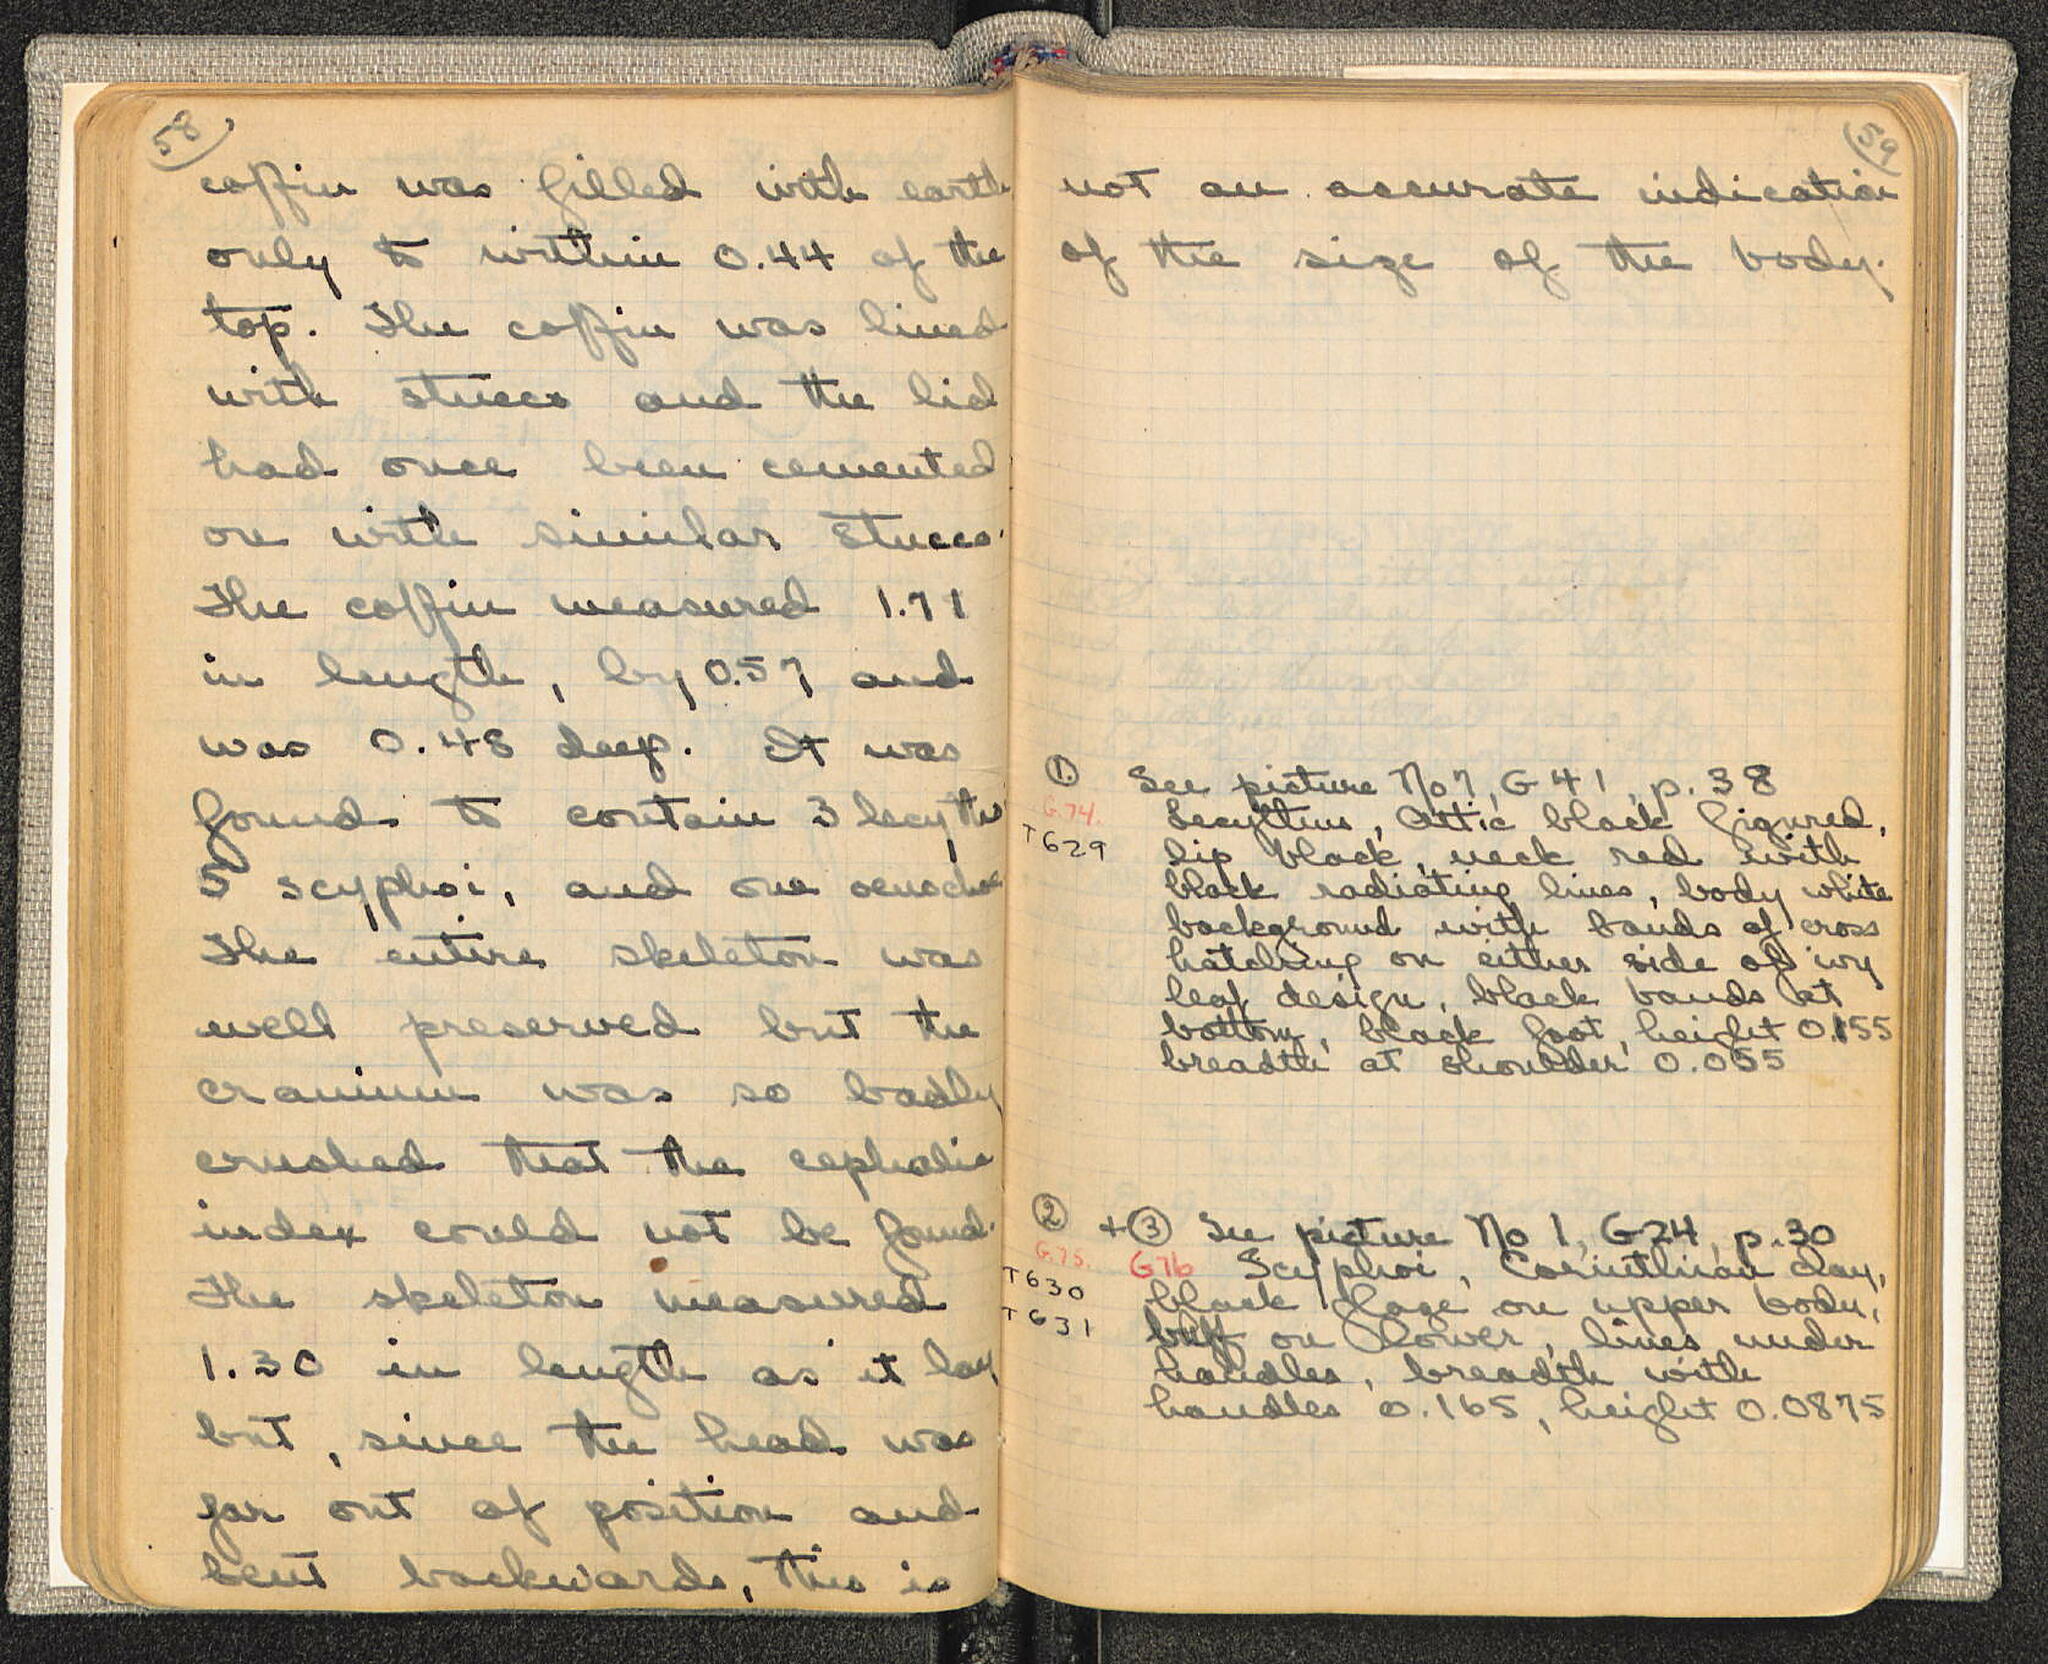 58
coffin was filled with earth
only to within 0.44 of the
top. The coffin was lined
with stucco and the lid
had once been cemented
on with similar stucco.
The coffin measured 1.71
in length, by 0.57 and
was 0.48 deep. It was
found to contain 3 lecythoi
5 scyphoi, and one oenochoe
The entire skeleton was
well preserved but the
cranium was so badly
crushed that the cephalic
index could not be found.
The skeleton measured
1.30 in length as it lay,
but, since the head was
far out of position and
bent backwards, this is
59
not an accurate indication
of the size of the body.
① See picture No 7, G 41, p. 38
G.74.
T 629
Lecythus, Attic black figured,
lip black, neck red with
black radiating lines, body white
background with bands of cross
hatching on either side of ivy
leaf design, black bands at
bottom, black foot, height 0.155
breadth at shoulder 0.055
② + ③ See picture No 1, G24, p. 30
G.75. G76
T 630
T 631
Scyphoi, Corinthian clay,
black glaze on upper body,
buff on lower, lines under
handles, breadth with
handles 0.165, height 0.0875